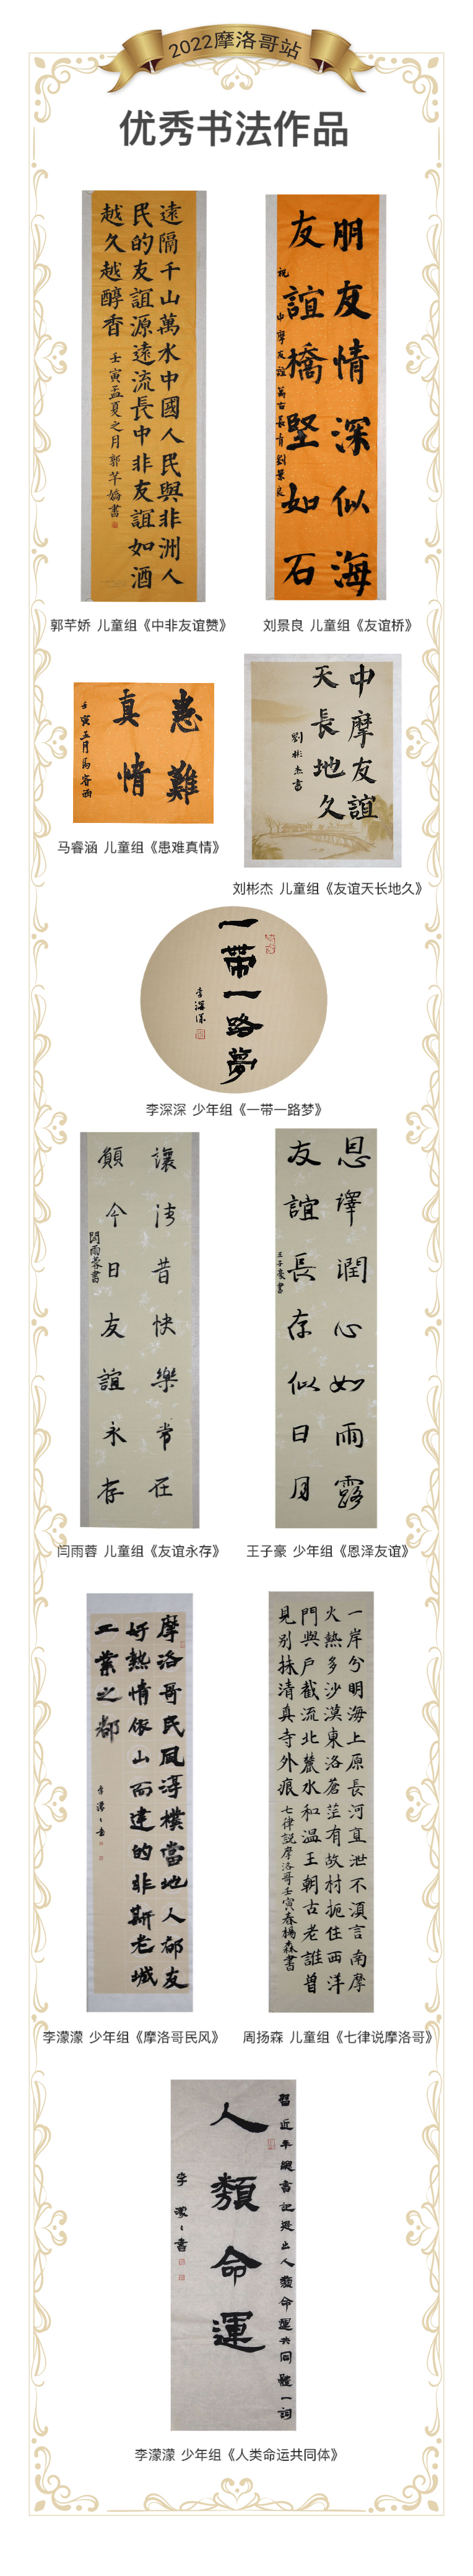 2022摩洛哥站
优秀书法作品
遠隔千山萬水中國人民與非洲人
民的友誼源遠流長中非友誼如酒
越久越醇香
壬寅孟夏之月郭芊嬌書
朋友情深似海
友誼橋堅如石
祝中摩友誼萬古長青劉景良
郭芊娇 儿童组《中非友谊赞》
刘景良 儿童组《友谊桥》
患難
真情
壬寅五月馬睿涵
中摩友誼
天長地久
劉彬杰書
马睿涵 儿童组《患难真情》
刘彬杰 儿童组《友谊天长地久》
一帶一路夢
李深深
李深深 少年组《一带一路梦》
讓往昔快樂常在
願今日友誼永存
閆雨蓉書
恩澤潤心如雨露
友誼長存似日月
王子豪書
闫雨蓉 儿童组《友谊永存》
王子豪 少年组《恩泽友谊》
摩洛哥民風淳樸當地人都友
好熱情依山而建的非斯老城
工業之都
李濛濛書
一岸兮明海上原長河直泄不須言南摩
火熱多沙漠東洛蒼茫有故村扼住西洋
門與戶截流北麓水和温王朝古老誰曾
見别抹清真寺外痕
七律説摩洛哥壬寅春楊森書
李濛濛 少年组《摩洛哥民风》
周扬森 儿童组《七律说摩洛哥》
習近平總書記提出人類命運共同體一詞
人類命運
李濛濛書
李濛濛 少年组《人类命运共同体》